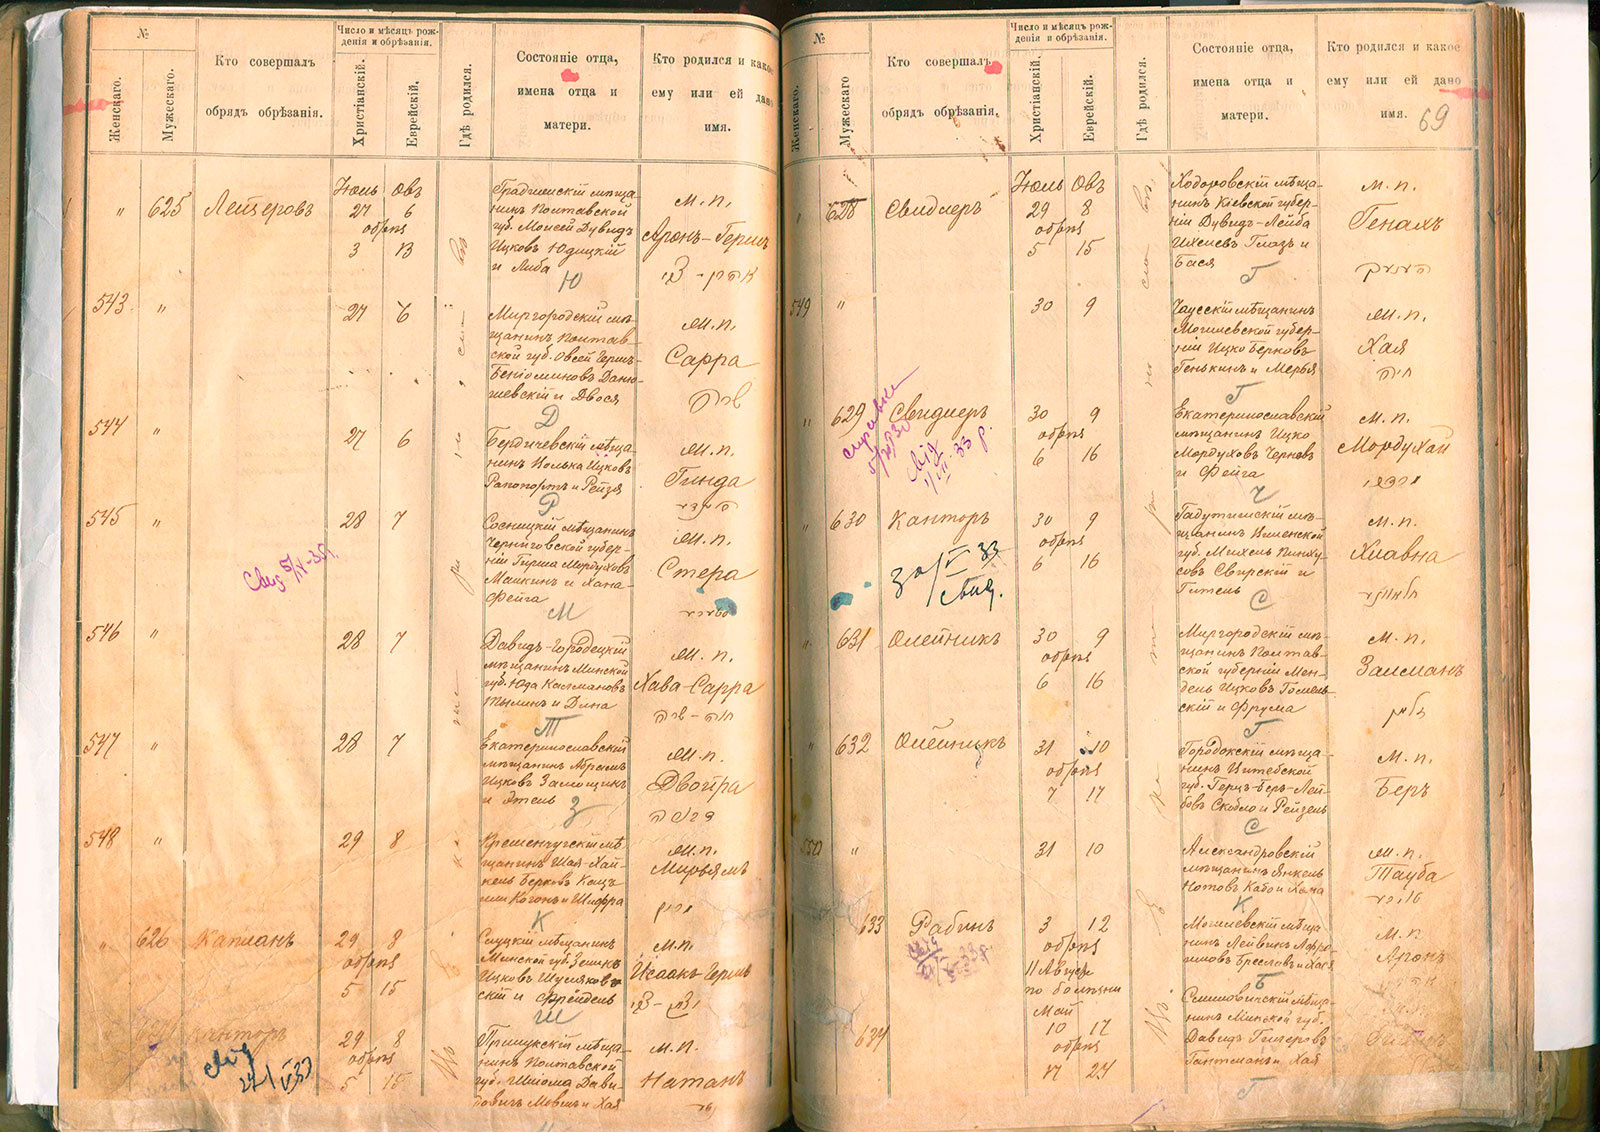 №
Женскаго.
Мужескаго.
Кто совершалъ
обрядъ обрѣзанія.
Число и мѣсяцъ рож-
денія и обрѣзанія.
Христіанскій.
Еврейскій.
Гдѣ родился.
Состояніе отца,
имена отца и
матери.
Кто родился и какое
ему или ей дано
имя.
" 625 Лейзеровъ
Іюль Овъ
27 6
обрѣз
3 13
нинъ Полтавской
губ. Моисей Дувидъ
Ицковъ Юдицкій
и Либа
Ю
м. п.
Аронъ-Гершъ
543 "
27 6
Миргородскій мѣ-
щанинъ Полтав-
ской губ. Овсей Гершъ-
и Двося
Д
м. п.
Сарра
שרה
544 "
27 6
Бердичевскій мѣща-
нинъ Іолька Ицковъ
Рапопортъ и Рейзя
Р
м. п.
Гинда
545 "
28 7
Сосницкій мѣщанинъ
Черниговской губер-
ніи Гирша Мордуховъ
Маикинъ и Хана-
Фейга
М
м. п.
Стера
546 "
28 7
Давидъ-Городецкій
мѣщанинъ Минской
губ. Юда Калмановъ
и Дина
Т
м. п.
Хава-Сарра
חוה - שרה
547 "
28 7
Екатеринославскій
мѣщанинъ Абрамъ
Ицковъ Замощикъ
и Этель
З
м. п.
Двойра
548 "
29 8
Кременчугскій мѣ-
щанинъ Шая-Хай-
кель Берковъ Кацъ
или Когонъ и Шифра
К
м. п.
Мирьямъ
" 626 Капланъ
29 8
обрѣз
5 15
Слуцкій мѣщанинъ
Минской губ. Зеликъ
Ицковъ Шуляков-
скій и Фрейдель
Ш
м. п.
Исаакъ-Гершъ
Канторъ
29 8
обрѣз
5 15
Прилукскій мѣща-
нинъ Полтавской
губ. Шлома Дави-
довичъ и Хая
м. п.
Натанъ
נתן
№
Женскаго.
Мужескаго
Кто совершалъ
обрядъ обрѣзанія.
Число и мѣсяцъ рож-
денія и обрѣзанія.
Христіанскій.
Еврейскій.
Гдѣ родился.
Состояніе отца,
имена отца и
матери.
Кто родился и какое
ему или ей дано
имя.
69
628 Свидлеръ
Іюль Овъ
29 8
обрѣз
5 15
Ходоровскій мѣща-
нинъ Кіевской губер-
ніи Дувидъ-Лейба
Глазъ и
Бася
Г
м. п.
Генахъ
549 "
30 9
Чаусскій мѣщанинъ
Могилевской губер-
ніи Ицко Берковъ
Генькинъ и Мерья
Г
м. п.
Хая
חיה
" 629 Свидлеръ
30 9
обрѣз
6 16
Екатеринославскій
мѣщанинъ Ицко
Мордуховъ Чернявъ
и Фейга
Ч
м. п.
Мордухай
מרדכי
" 630 Канторъ
30/V 33
свид.
30 9
обрѣз
6 16
щанинъ Виленской
губ. Михель Пинху-
совъ Свирскій и
Гитель
С
м. п.
Хлавна
" 631 Олейникъ
30 9
обрѣз
6 16
Миргородскій мѣ-
щанинъ Полтав-
ской губерніи Мен-
дель Ицковъ Гомель-
скій и Фрума
Г
м. п.
Залманъ
זלמן
" 632 Олейникъ
31 10
обрѣз
7 17
Городокскій мѣща-
нинъ Витебской
губ. Герцъ-Беръ-Лей-
бовъ Скобло и Рейзель
С
м. п.
Беръ
550 "
31 10
Александровскій
мѣщанинъ Янкель
Нотовъ Кабо и Хана
К
м. п.
Тауба
633 Рабинъ
3 12
обрѣз
11 Август
по болѣзни
Могилевскій мѣща
нинъ Лейвикъ
Бреславъ и Хая
Б
м. п.
Аронъ
634
Май
10 17
обрѣз
17 24
нинъ Минской губ.
Давидъ
Гантманъ и Хая
Г